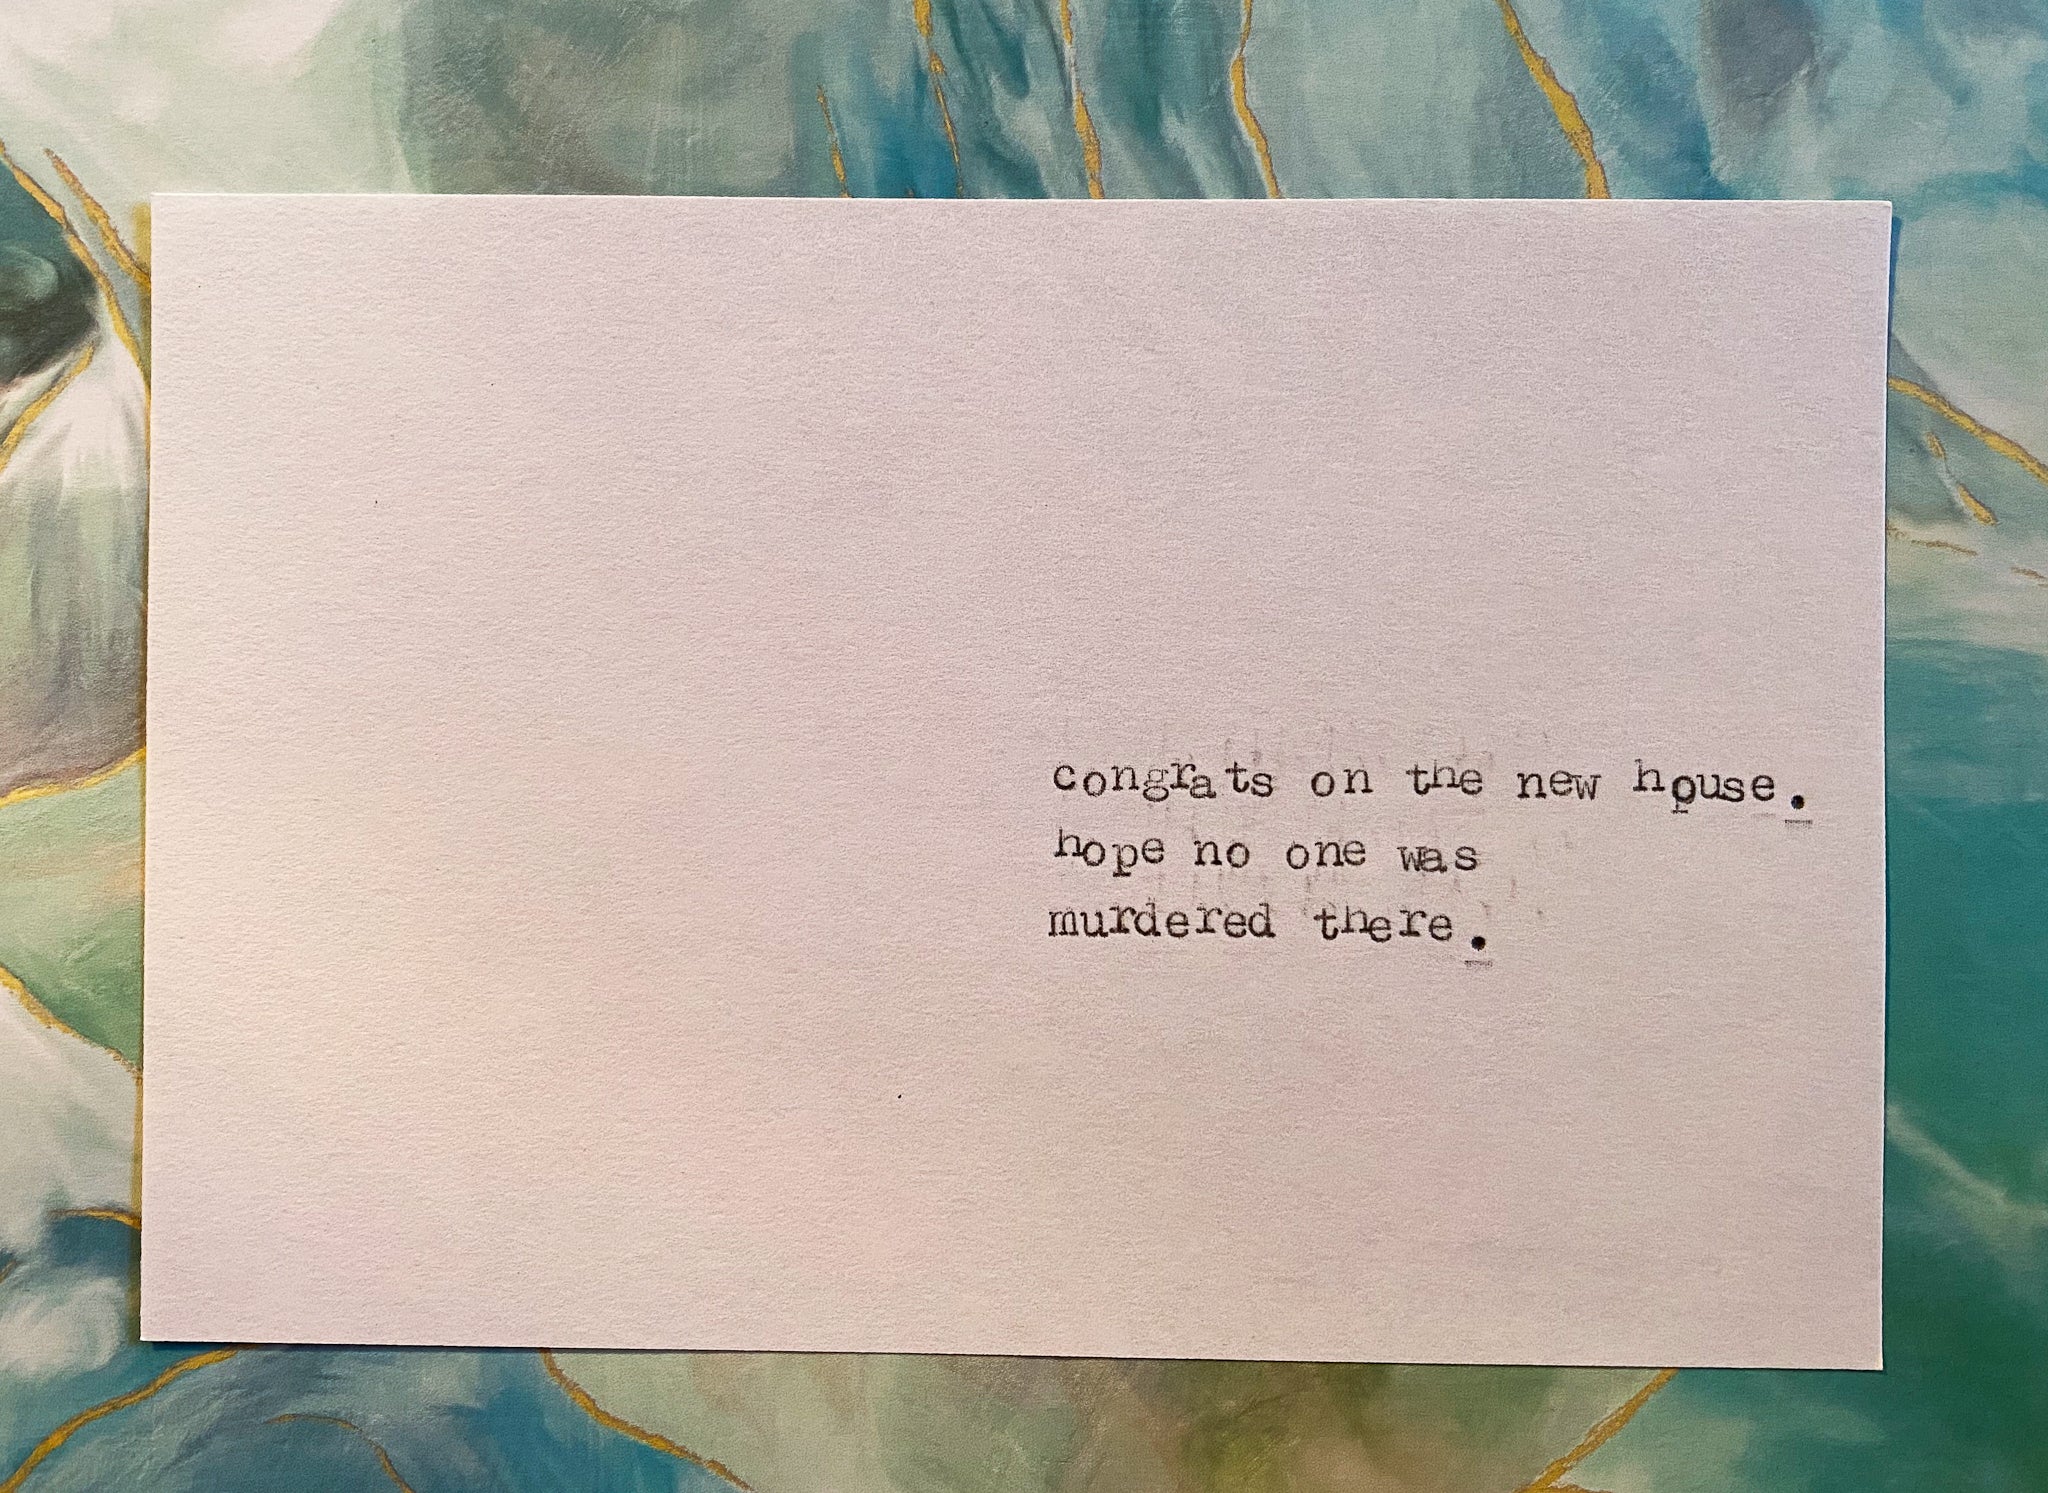 congrats on the new house.
hope no one was
murdered there.